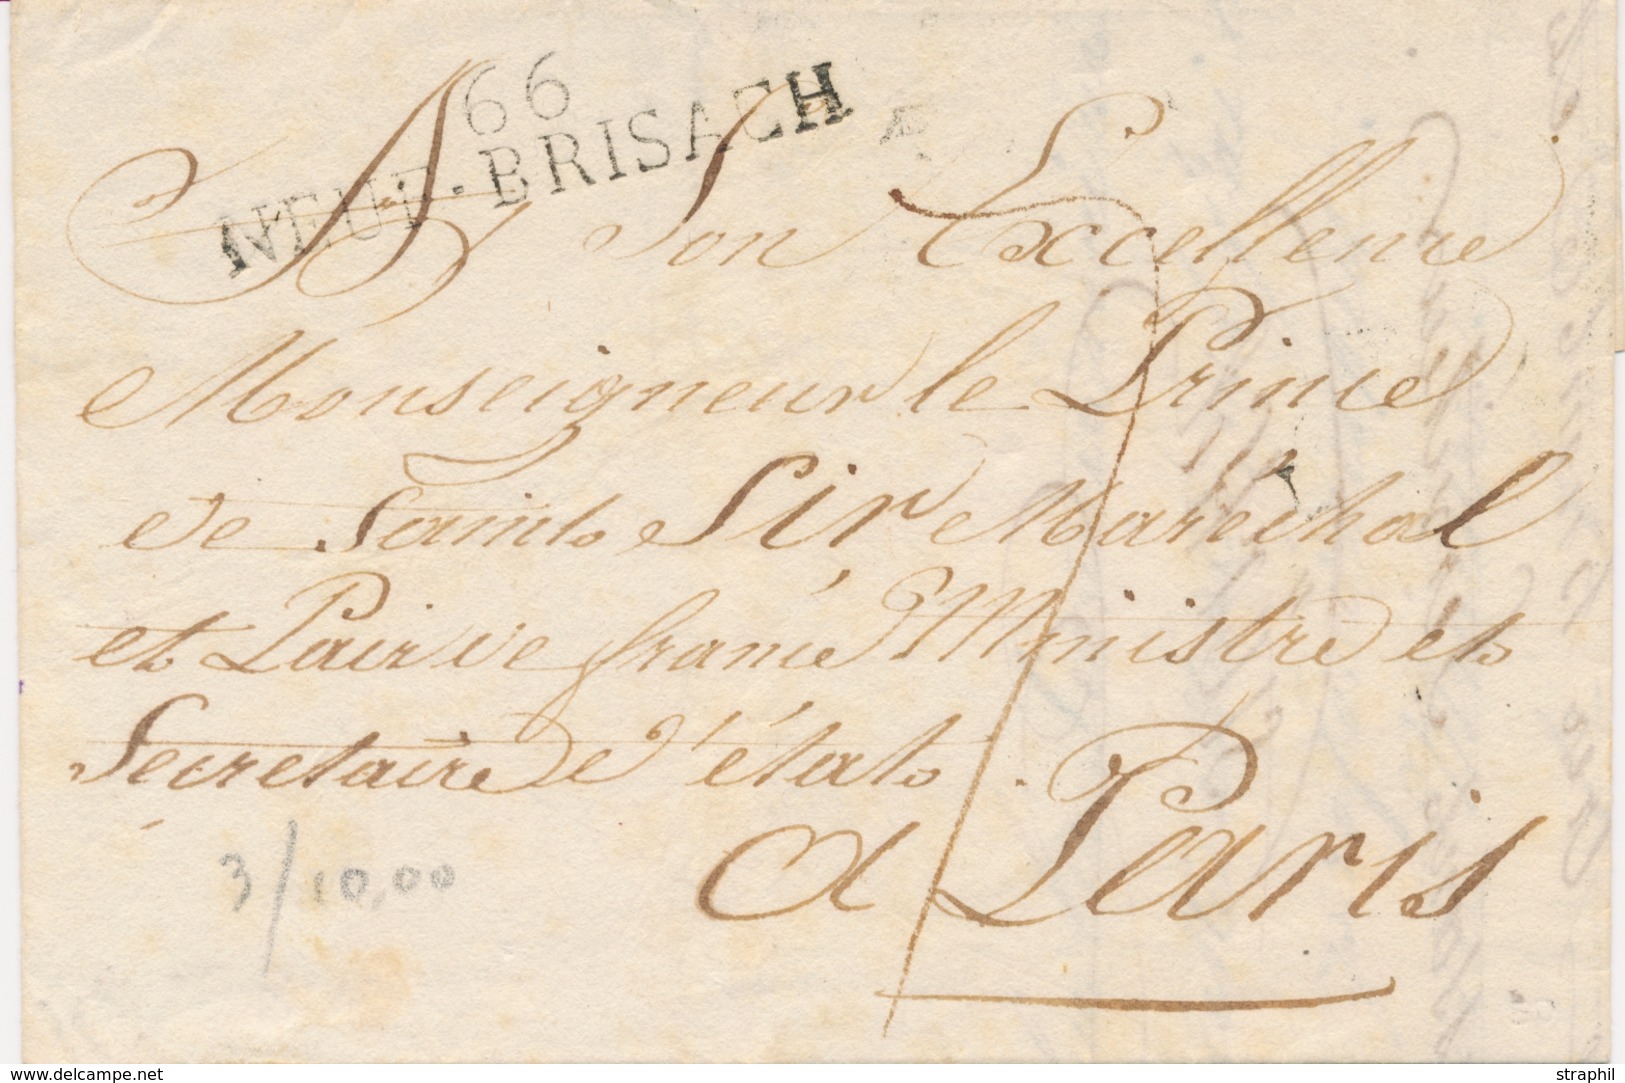 66
NEUF-BRISACH
A Son Excellence
Monseigneur le Prince
de Saint Sir Marechal
et Pair de france Ministre et
Secretaire d'état.
a Paris
3/10,00
www.delcampe.net
straphil